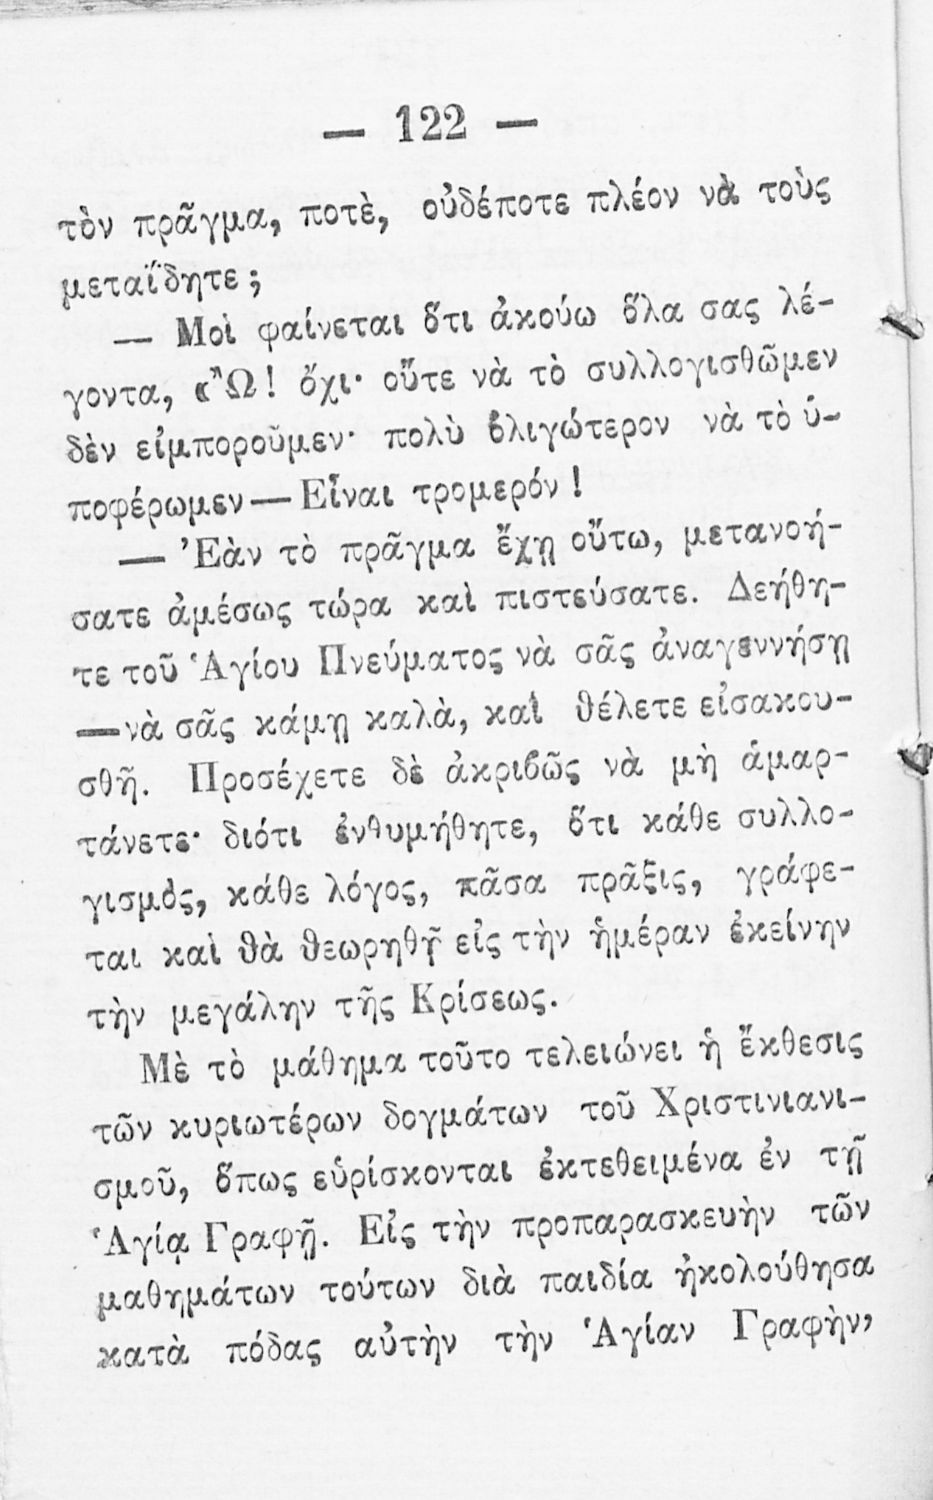 — 122 —
τὸν πρᾶγμα, ποτὲ, οὐδέποτε πλέον νὰ τοὺς
μεταΐδητε ;
— Μοὶ φαίνεται ὅτι ἀκούω ὅλα σας λέ-
γοντα, «Ὢ! ὄχι· οὔτε νὰ τὸ συλλογισθῶμεν
δὲν εἰμποροῦμεν· πολὺ ὀλιγώτερον νὰ τὸ ὑ-
ποφέρωμεν — Εἶναι τρομερόν !
— Ἐὰν τὸ πρᾶγμα ἔχῃ οὕτω, μετανοή-
σατε ἀμέσως τώρα καὶ πιστεύσατε. Δεήθη-
τε τοῦ Ἁγίου Πνεύματος νὰ σᾶς ἀναγεννήσῃ
—νὰ σᾶς κάμῃ καλὰ, καὶ θέλετε εἰσακου-
σθῆ. Προσέχετε δὲ ἀκριβῶς νὰ μὴ ἁμαρ-
τάνετε· διότι ἐνθυμήθητε, ὅτι κάθε συλλο-
γισμὸς, κάθε λόγος, πᾶσα πρᾶξις, γράφε-
ται καὶ θὰ θεωρηθῇ εἰς τὴν ἡμέραν ἐκείνην
τὴν μεγάλην τῆς Κρίσεως.
Μὲ τὸ μάθημα τοῦτο τελειώνει ἡ ἔκθεσις
τῶν κυριωτέρων δογμάτων τοῦ Χριστινιανι-
σμοῦ, ὅπως εὑρίσκονται ἐκτεθειμένα ἐν τῇ
Ἁγίᾳ Γραφῇ. Εἰς τὴν προπαρασκευὴν τῶν
μαθημάτων τούτων διὰ παιδία ἠκολούθησα
κατὰ πόδας αὐτὴν τὴν Ἁγίαν Γραφὴν,